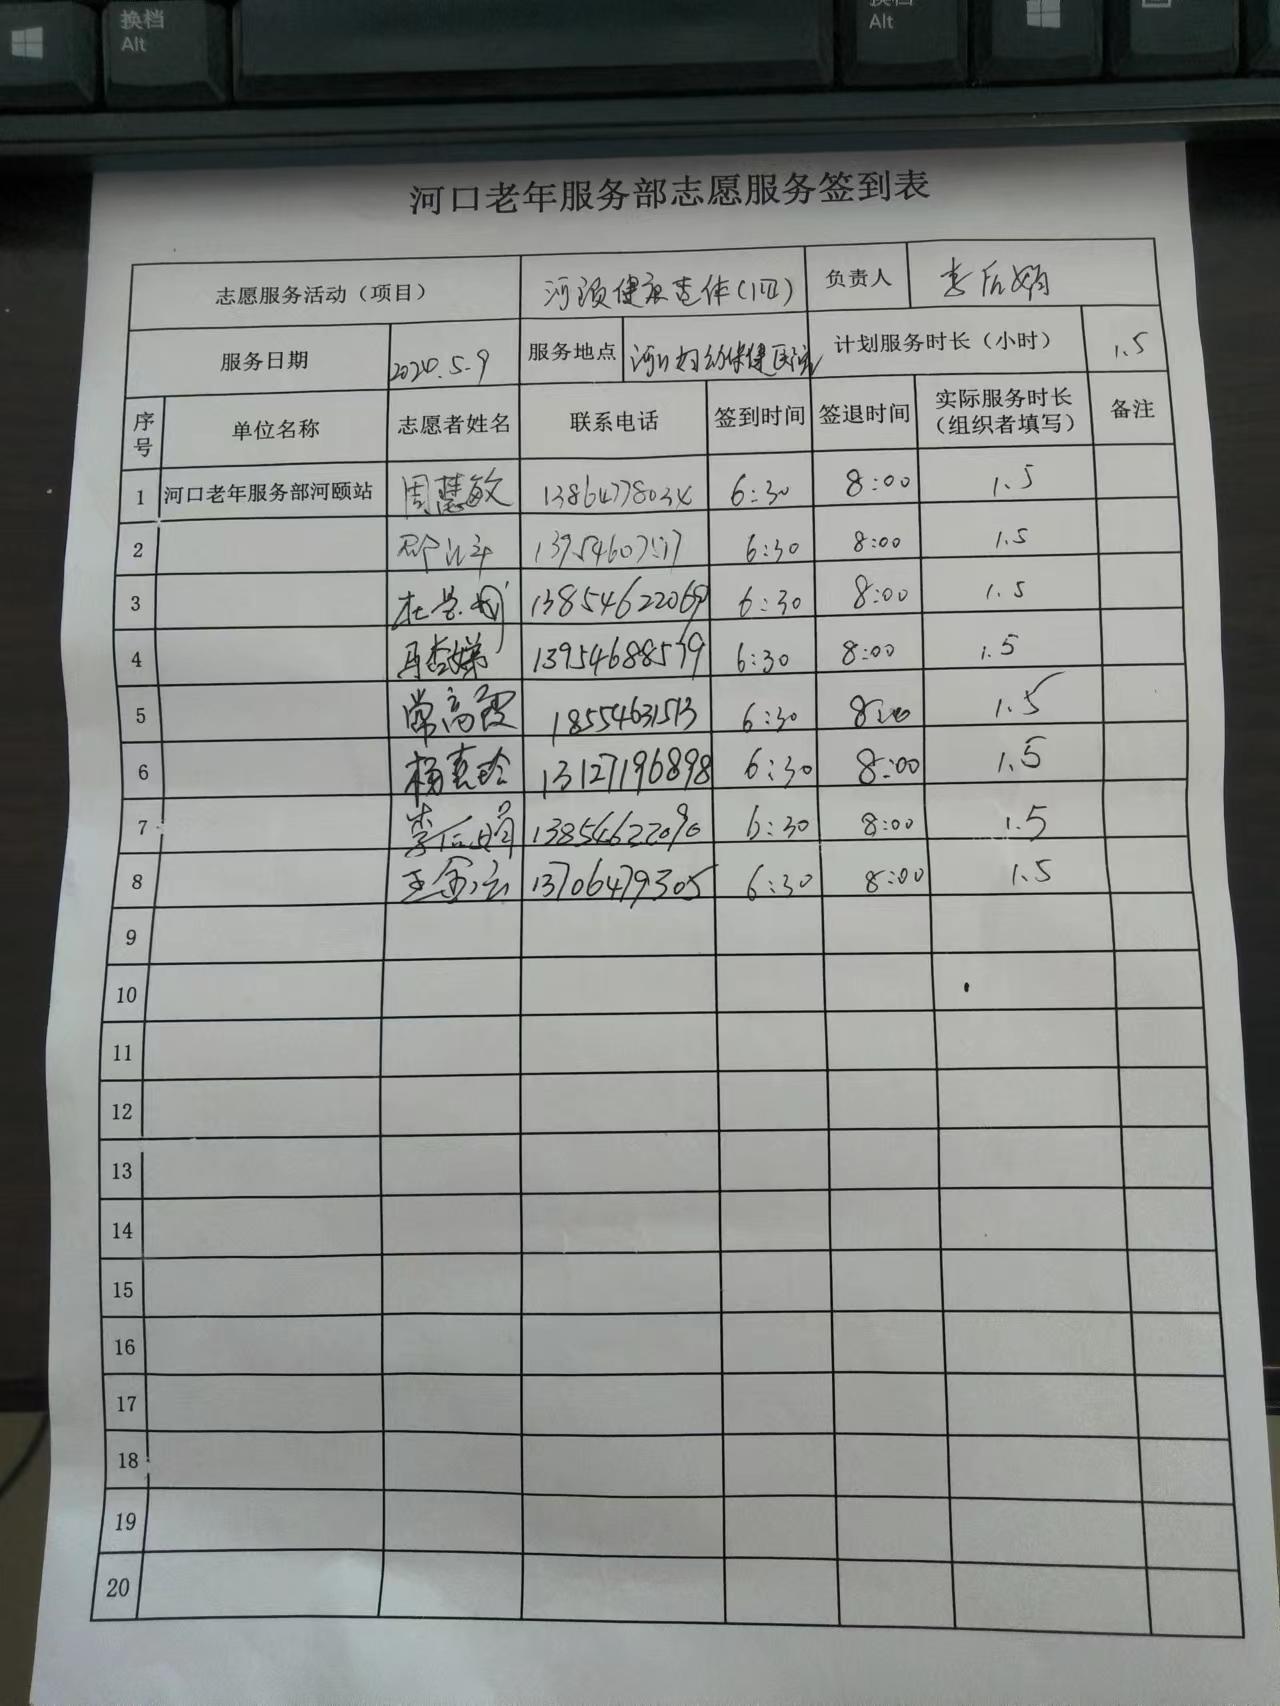 换档
Alt
换档
Alt
河口老年服务部志愿服务签到表
志愿服务活动（项目） 河颐健康查体(1四) 负责人 李后娟
服务日期 2024.5.9 服务地点 河口妇幼保健医院 计划服务时长（小时） 1.5
序号 单位名称 志愿者姓名 联系电话 签到时间 签退时间 实际服务时长（组织者填写） 备注
1 河口老年服务部河颐站 周慧敏 6:30 8:00 1.5
2 6:30 8:00 1.5
3 13854622069 6:30 8:00 1.5
4 6:30 8:00 1.5
5 常高霞 18554631513 6:30 8:00 1.5
6 13127196898 6:30 8:00 1.5
7 李后娟 13854622090 6:30 8:00 1.5
8 13706479305 6:30 8:00 1.5
9
10
11
12
13
14
15
16
17
18
19
20